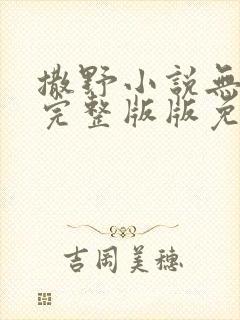 撒野小説無
完整版版免
吉岡美穗